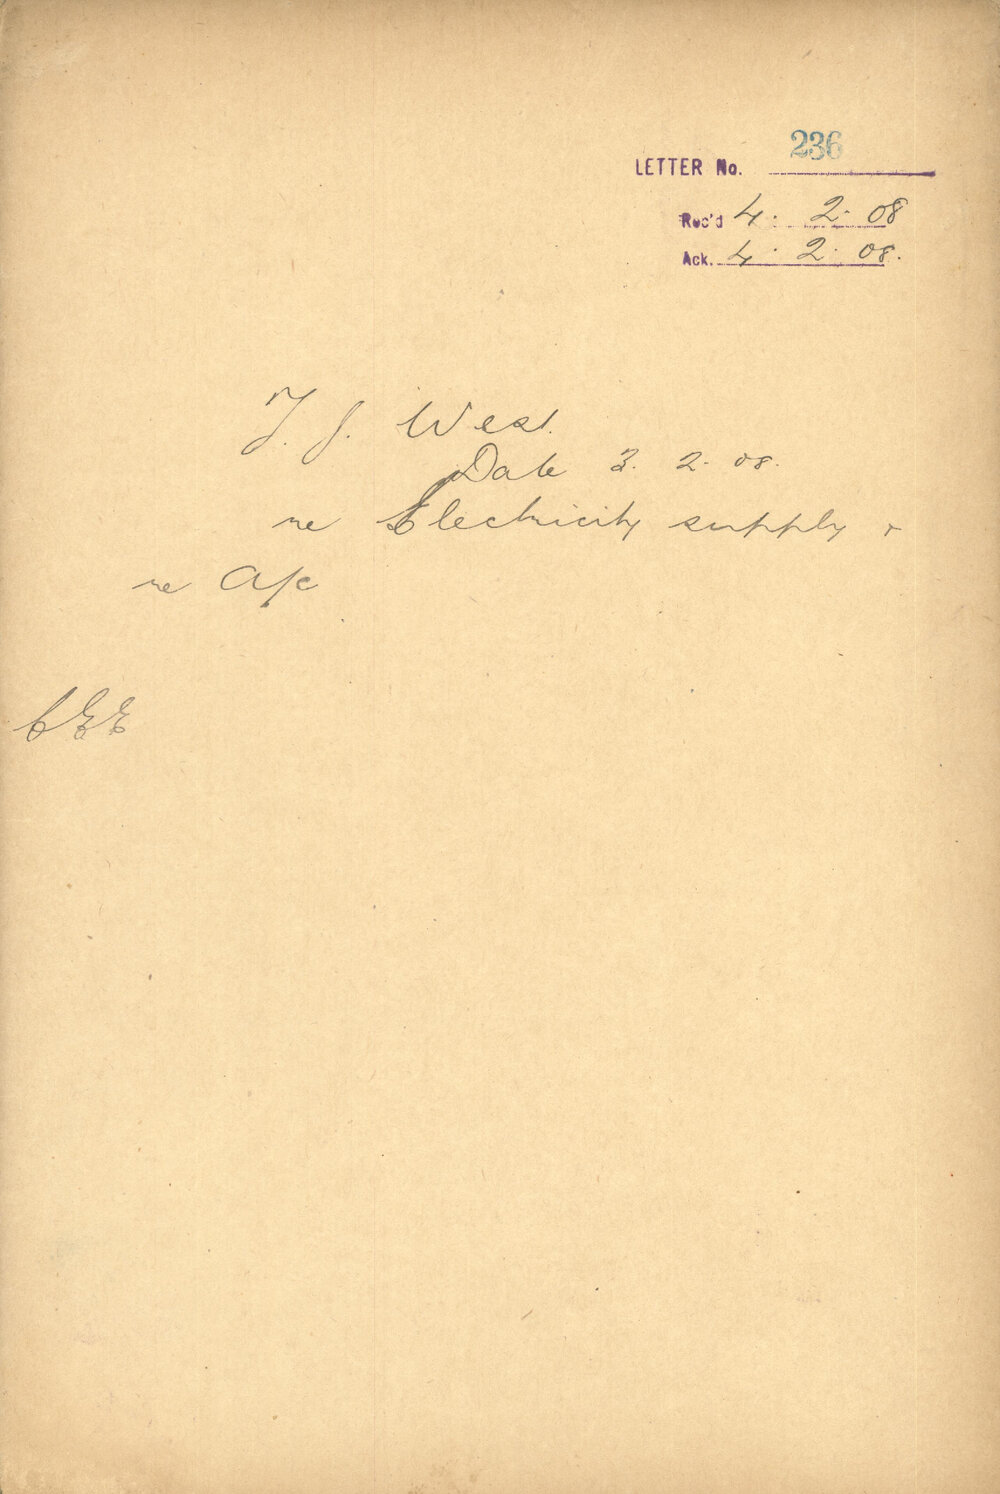 LETTER No. 236
Rec'd 4. 2. 08
Ack. 4. 2. 08.
T. J. West.
Date 3. 2. 08.
re Electricity supply &
re A/c
CEE